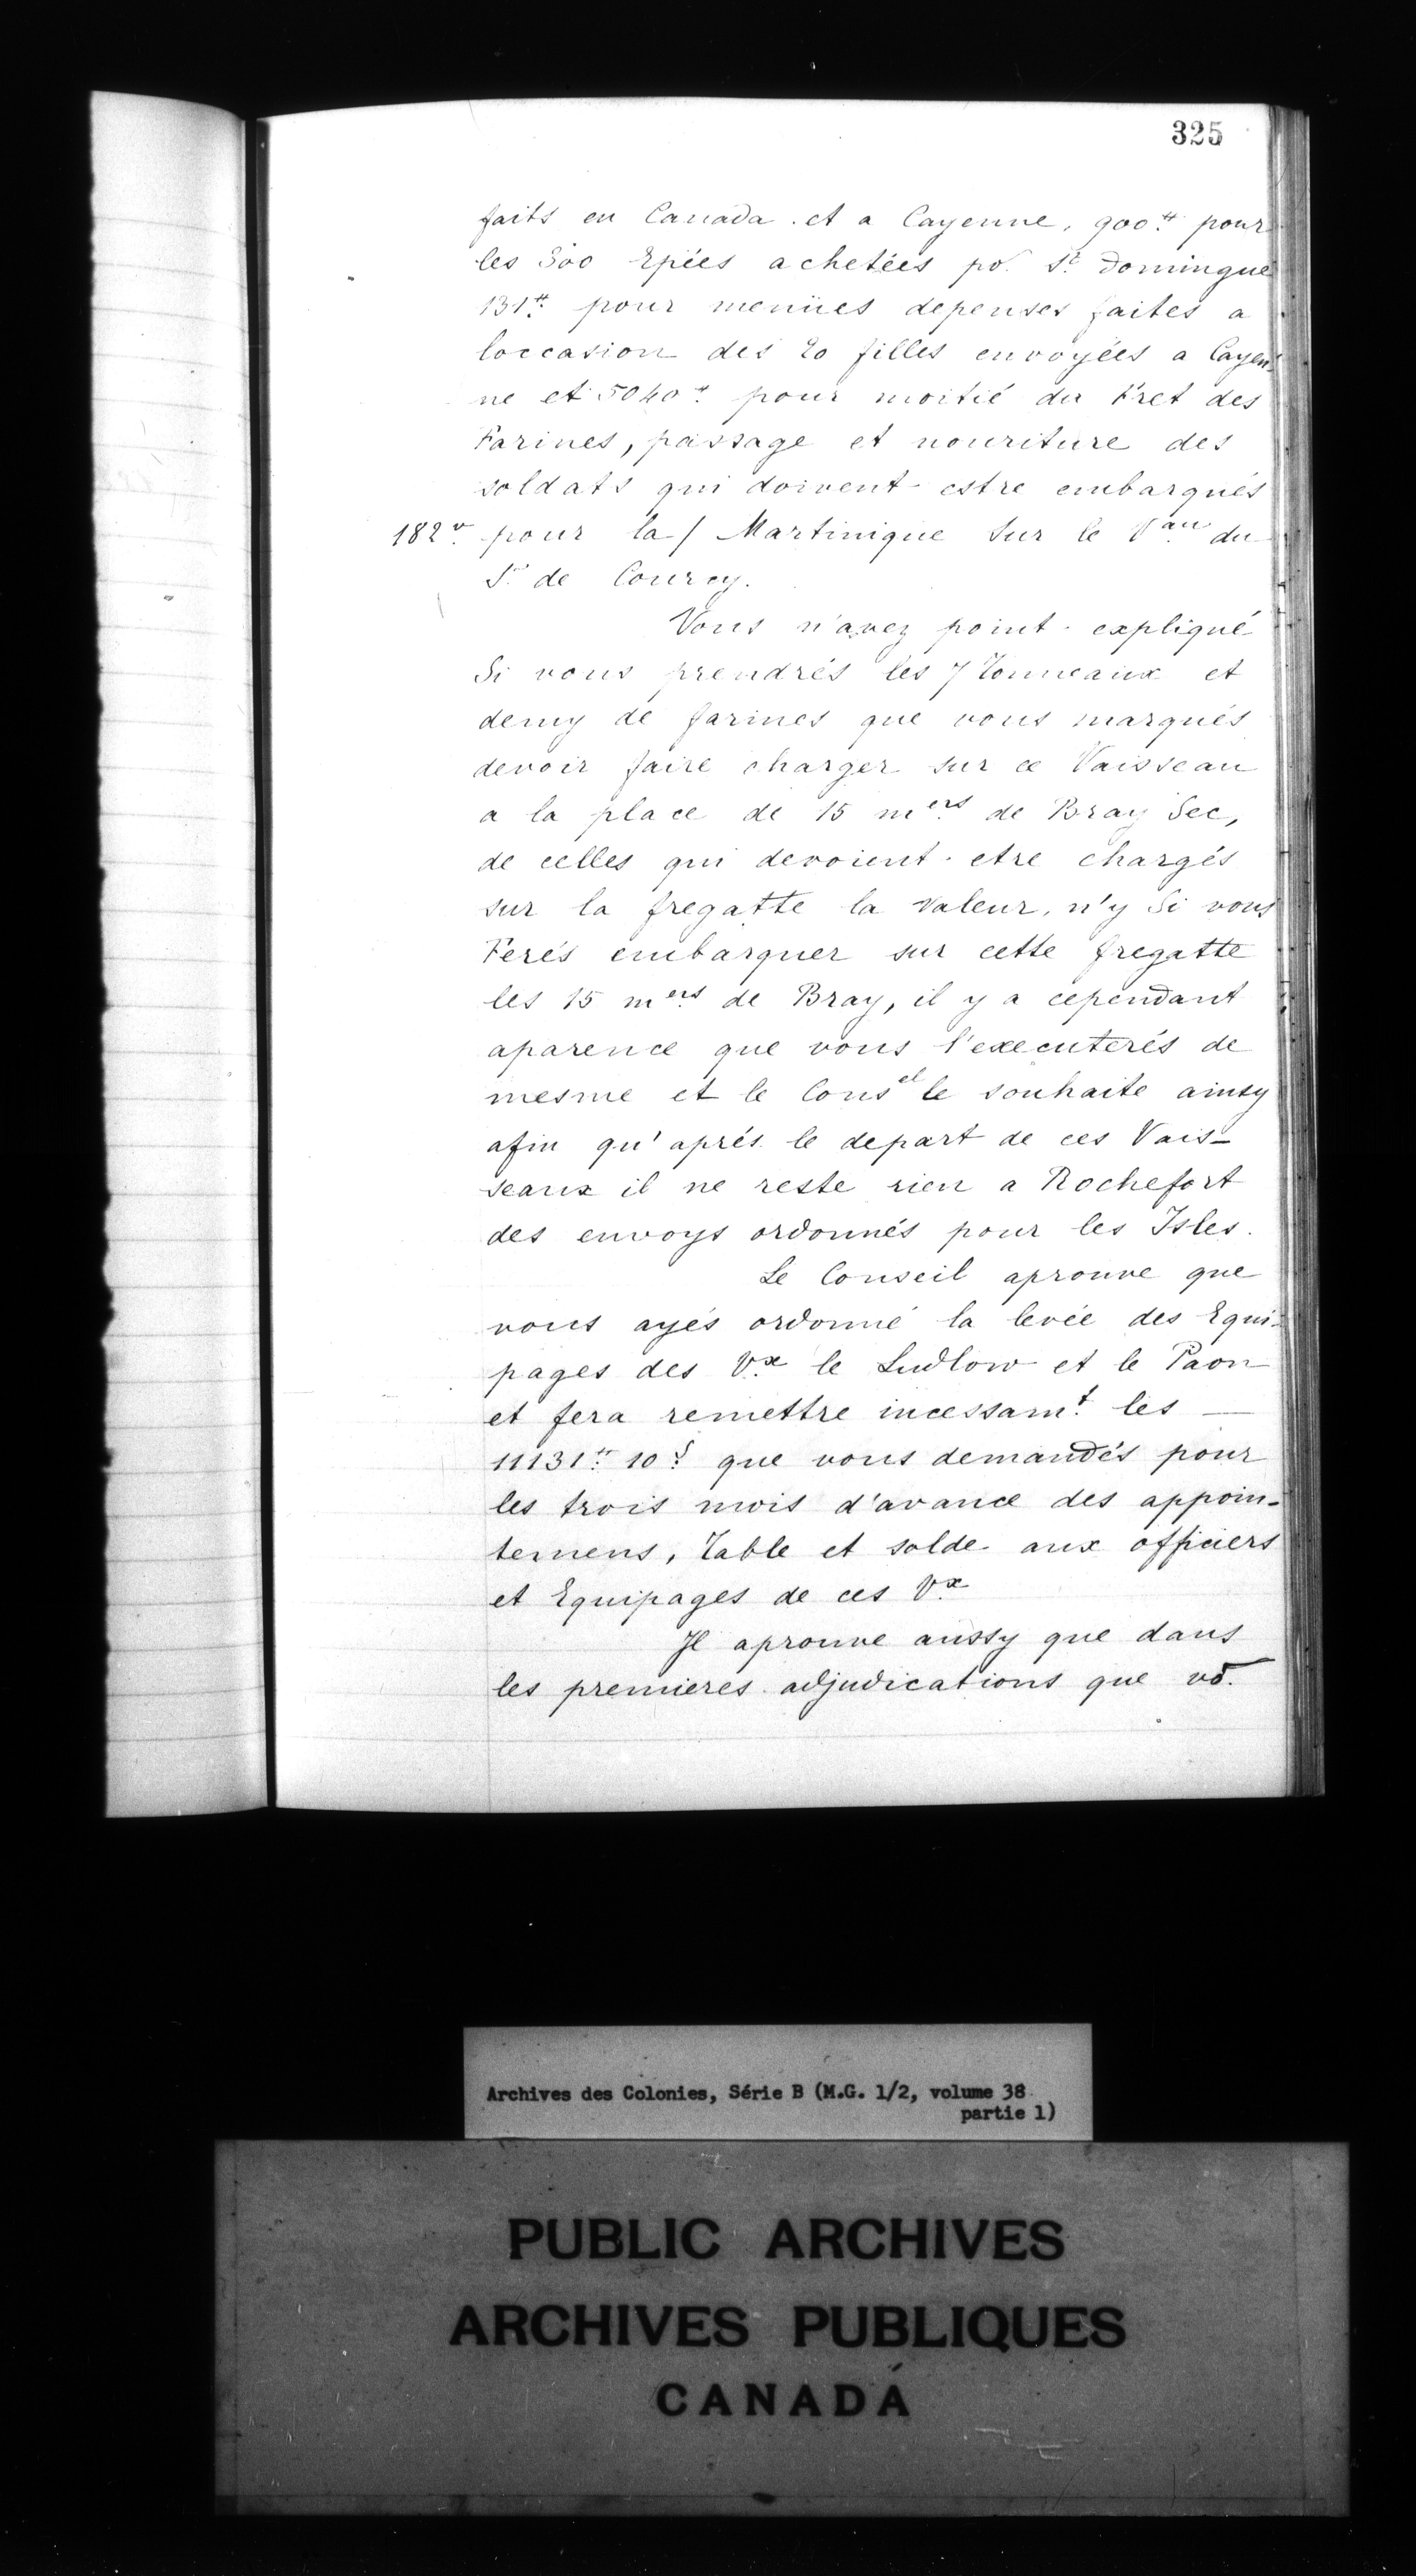 325
faits en Canada et a Cayenne, 900# pour
les 300 Epées achetées po. St Domingue
131# pour menües depenses faites a
loccasion des 20 filles envoyées a Cayen-
ne et 5040# pour moitié du Fret des
Farines, passage et nouriture des
soldats qui doivent estre embarqués
182 v. pour la / Martinique Sur le Vau du
Sr de Courcy.
Vous n'avez point expliqué
Si vous prendrés les 7 Tonneaux et
demy de farines que vous marqués
devoir faire charger sur ce Vaisseau
a la place de 15 mers de Bray Sec,
de celles qui devoient etre chargés
sur la fregatte la Valeur, n'y Si vous
Ferés embarquer sur cette fregatte
les 15 mers de Bray, il y a cependant
aparence que vous l'executerés de
mesme et le Consel le souhaite ainsy
afin qu'aprés le depart de ces Vais-
seaux il ne reste rien a Rochefort
des envoys ordonnés pour les Isles.
Le Conseil aprouve que
vous ayés ordonné la levée des Equi-
pages des Vx le Ludlow et le Paon
et fera remettre incessamt les —
11131# 10s que vous demandés pour
les trois mois d'avance des appoin-
temens, Table et solde aux officiers
et Equipages de ces Vx
Il aprouve aussy que dans
les premieres adjudications que vō.
Archives des Colonies, Série B (M.G. 1/2, volume 38
partie 1)
PUBLIC ARCHIVES
ARCHIVES PUBLIQUES
CANADA